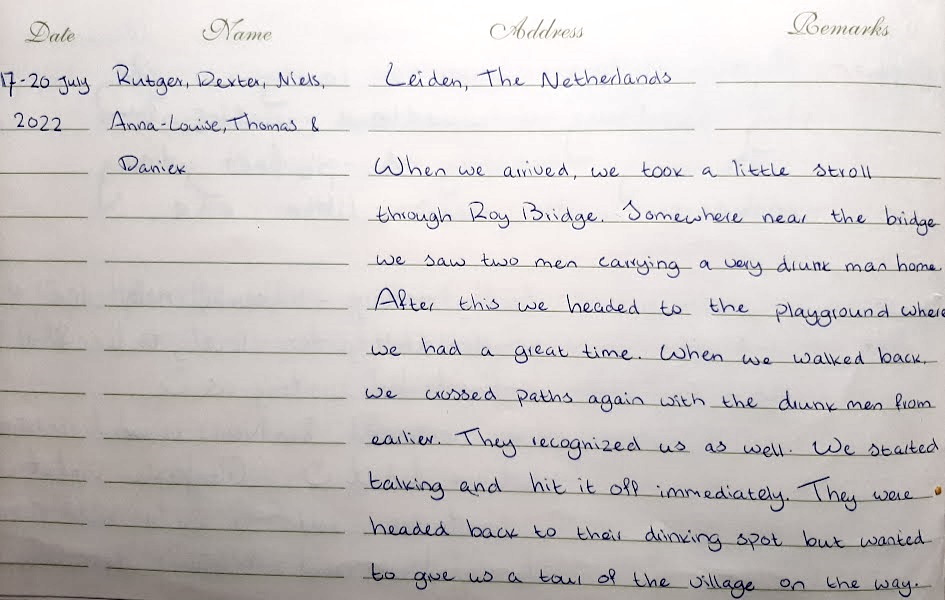 Date Name Address Remarks
17-20 July Rutger, Dexter, Niels, Leiden, The Netherlands
2022 Anna-Louise, Thomas &
Daniek When we arrived, we took a little stroll
through Roy Bridge. Somewhere near the bridge
we saw two men carrying a very drunk man home.
After this we headed to the playground where
we had a great time. When we walked back,
we crossed paths again with the drunk men from
earlier. They recognized us as well. We started
talking and hit it off immediately. They were
headed back to their drinking spot but wanted
to give us a tour of the village on the way.